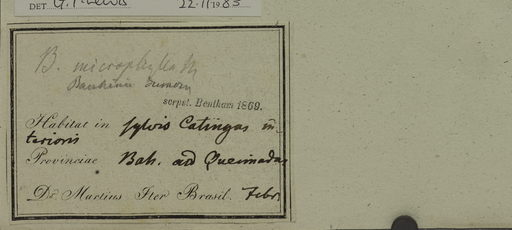 DET. G. P. Lewis 22.11.1985
B. microphylla
Bauhinia
scrpsit. Bentham 1869.
Habitat in sylvis Catingas in-
terioris
Provinciae Bah. ad Queimadas
Dr. Martius Iter Brasil. Febr